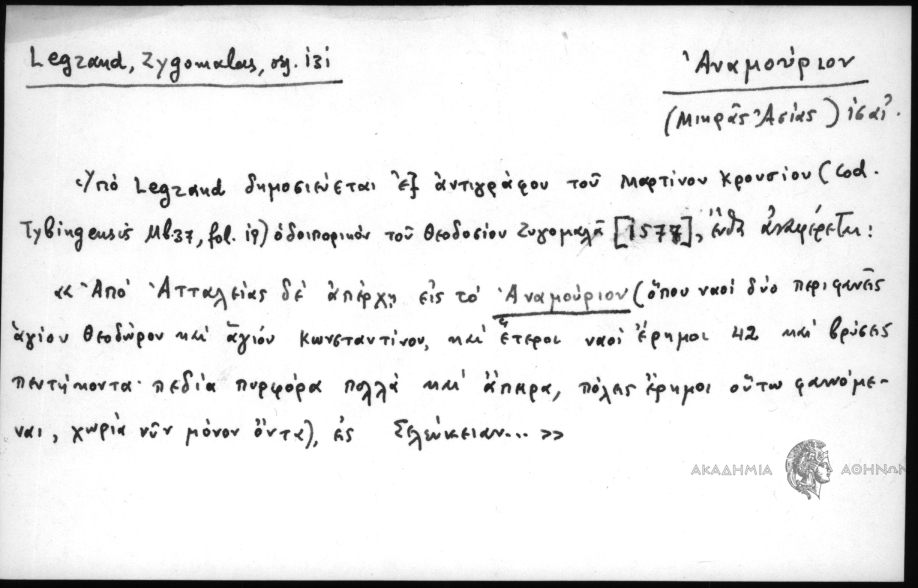 Legrand, Zygomalas, σχ. 131
Ἀναμούριον
(Μικρᾶς Ἀσίας)
Ὑπὸ Legrand δημοσιεύεται ἐξ ἀντιγράφου τοῦ Μαρτίνου Κρουσίου (Cod.
Tybingensis Mb.37, fol. 19) ὁδοιπορικὸν τοῦ Θεοδοσίου Ζυγομαλᾶ [1577], ἔνθα ἀναφέρεται:
«Ἀπὸ Ἀτταλείας δὲ εἰς τὸ Ἀναμούριον (ὅπου ναοὶ δύο περιφανεῖς
ἁγίου Θεοδώρου καὶ ἁγίου Κωνσταντίνου, καὶ ἕτεροι ναοὶ ἔρημοι 42 καὶ βρύσεις
πεντήκοντα· πεδία πυρφόρα πολλὰ καὶ ἄπειρα, πόλεις ἔρημοι οὕτω φαινόμε-
ναι, χωρία νῦν μόνον ὄντα), ἐς Σελεύκειαν... »
ΑΚΑΔΗΜΙΑ ΑΘΗΝΩΝ